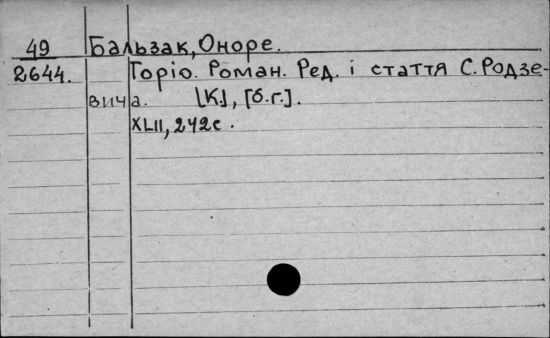 49 Бальзак, Оноре.
2644. Горіо. Роман. Ред. і стаття С. Родзе-
вича. [К.], [б.г.].
XLII, 242с.